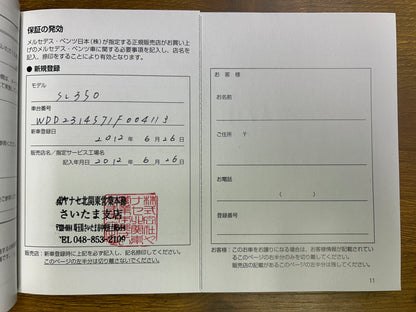 保証の発効
メルセデス・ベンツ日本(株)が指定する正規販売店がお買い上
げのメルセデス・ベンツ車に関する必要事項を記入し、店名を
記入、捺印をすることにより有効となります。
● 新規登録
モデル
SL350
車台番号
WDD2314571F004113
新車登録日
2012年 6月26日
販売店名／指定サービス工場名
記入年月日 2012年 6月26日
ヤナセ北関東営業本部
さいたま支店
TEL 048-853-2109
販売店：新車登録時に上記を必ず記入、記名捺印してください。
このページの左半分は切り離さないでください。
お 客 様
お名前
ご住所 〒
お電話
( )
登録番号
お客様：このお車をお譲りになる場合は、お客様情報が記載されて
いるこのページの右半分のみを切り離してください。
販売店の記載があるこのページの左半分は残してください。
11